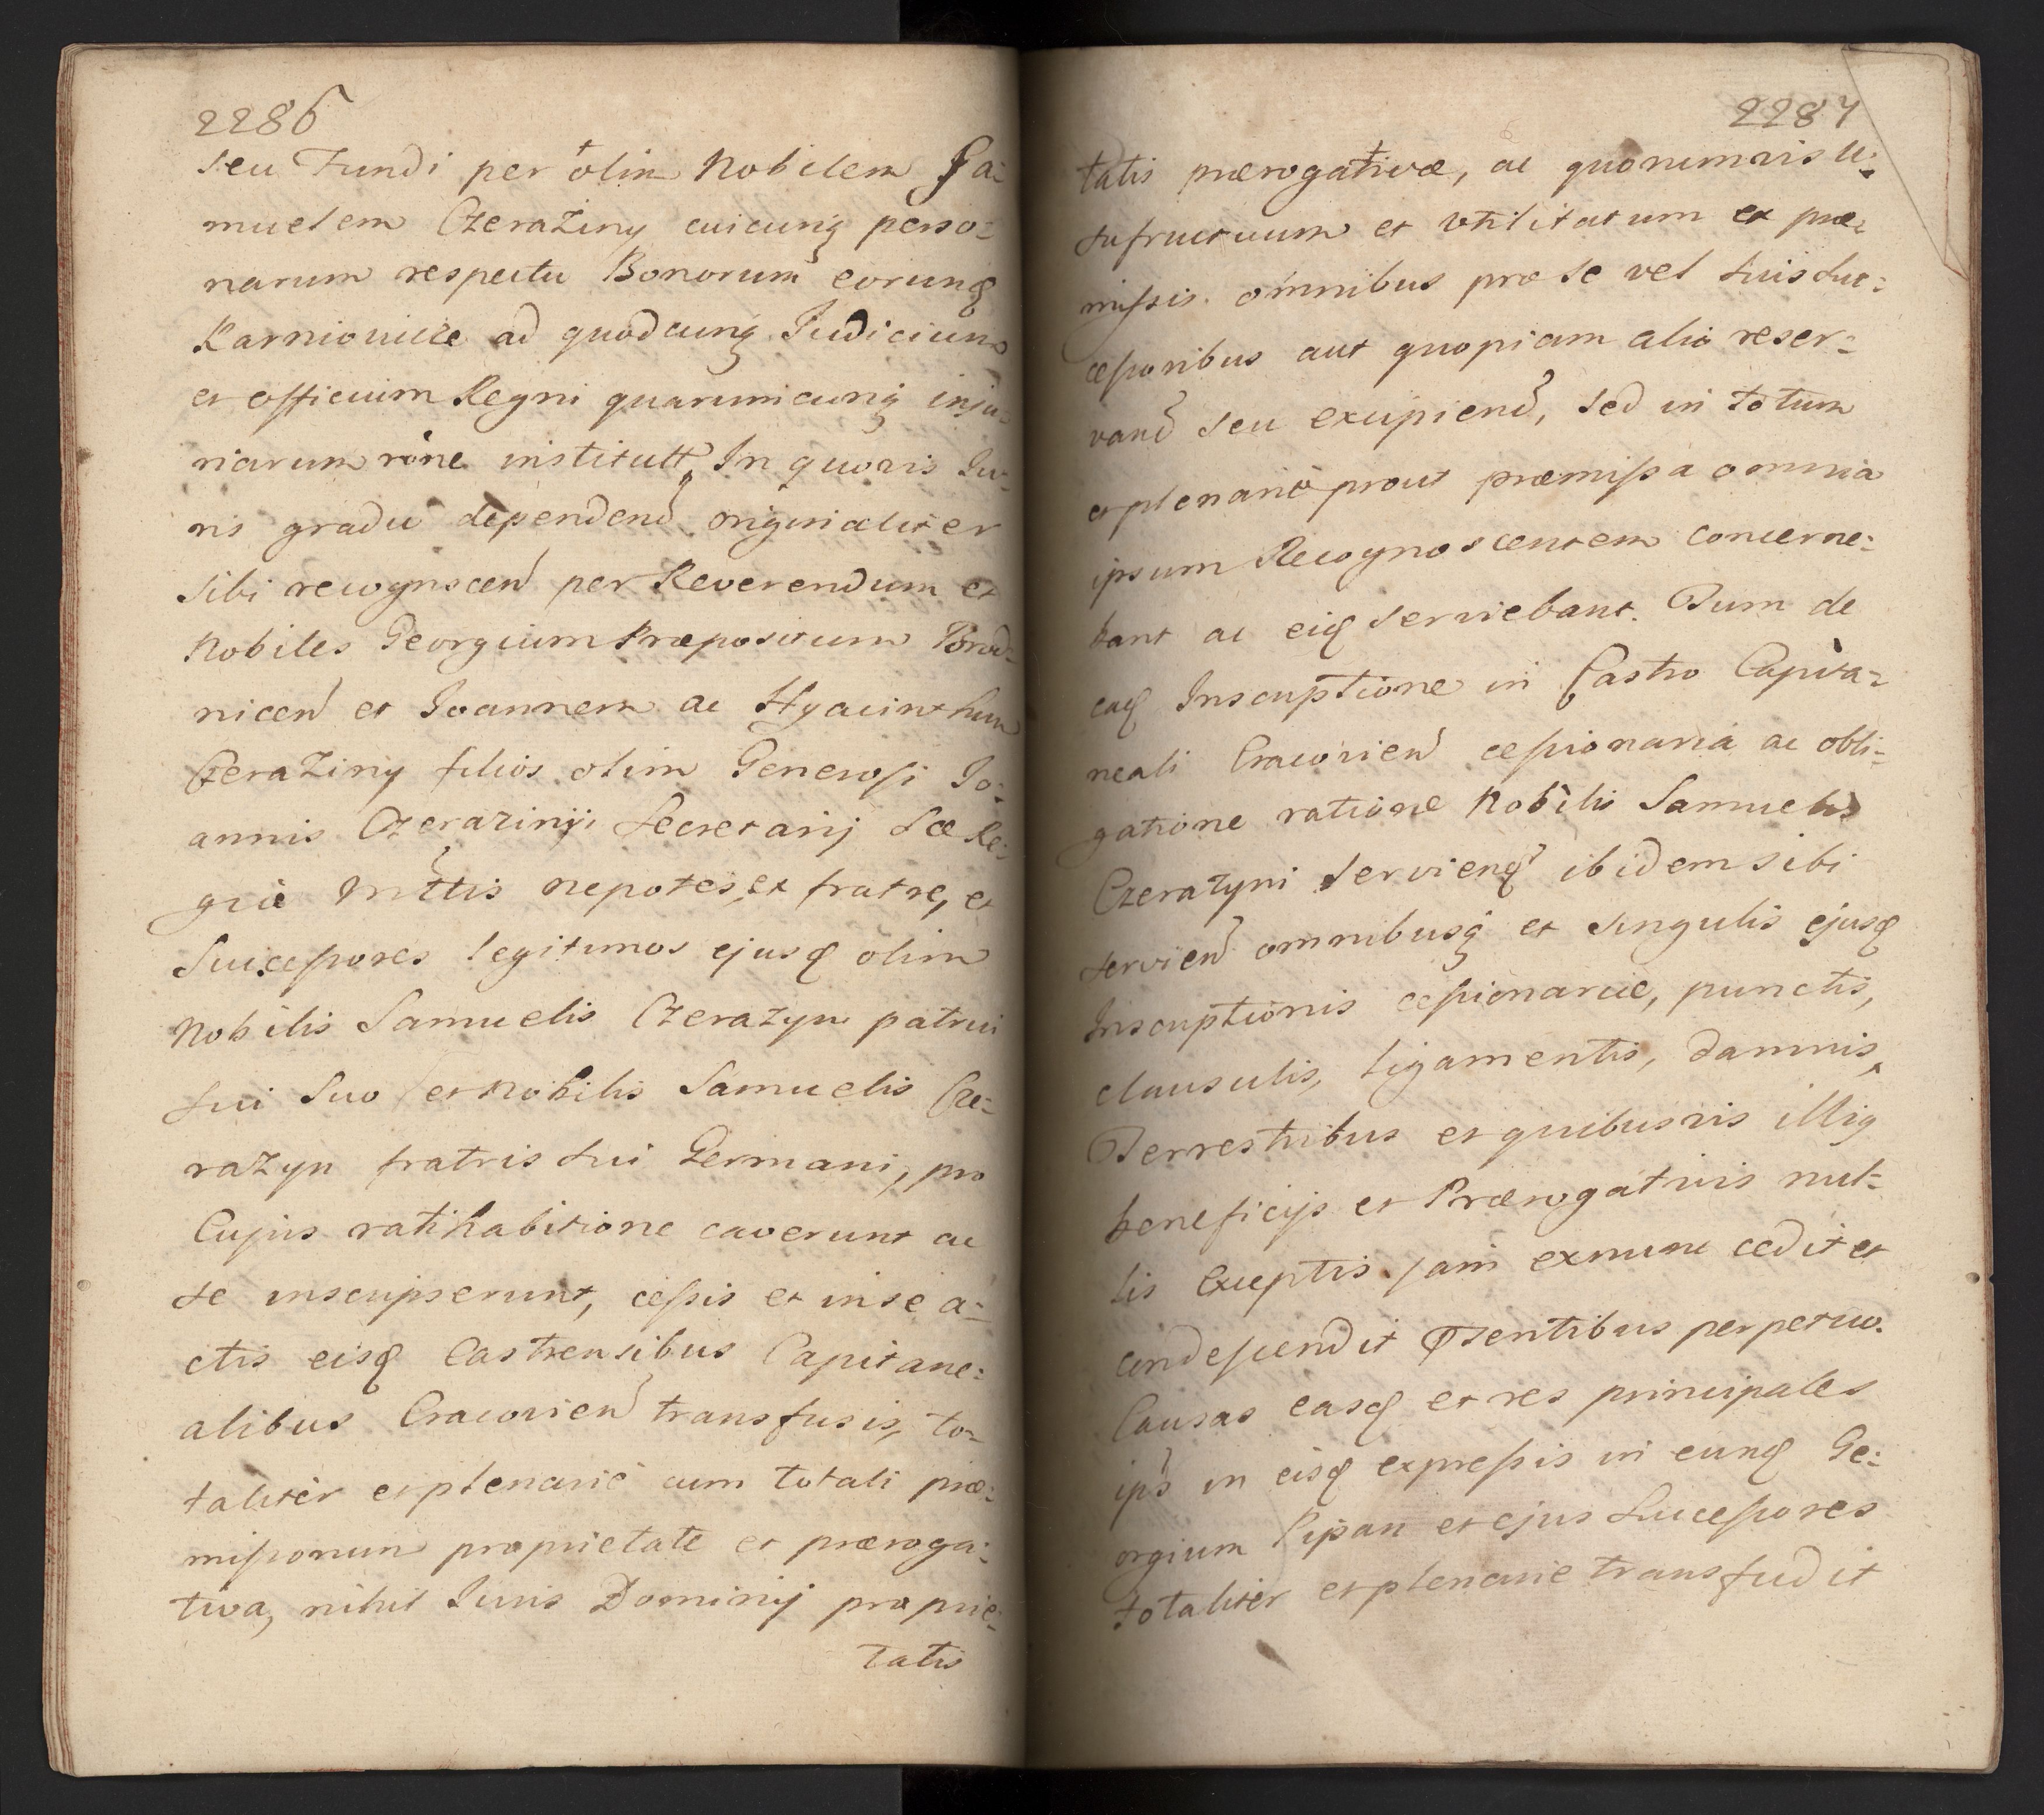 2286
seu Fundi per olim Nobilem Sa:
muelem Czerażiny cuicunq perso:
narum respectu Bonorum eorunq
Karniowice ad quodcunq Judicium
et officium Regni quarumcunq inju:
riarum rõne institutt, In quovis Ju:
ris gradu dependend originaliter
sibi recognoscen per Reverendum et
Nobiles Georgium Præpositum
nicen et Joannem ac Hyacinthum
Czerażiny filios olim Generosi Jo:
annis Czerazinÿi Secretarij Sæ Re:
giæ Mttis nepotes, ex fratre, et
Successores legitimos ejusq olim
Nobilis Samuelis Czerazyn patrui
sui suo et Nobilis Samuelis Cze:
razyn fratris sui Germani, pro
Cujus ratihabitione caverunt ac
se inscripserunt, cessis et in se a:
ctis eisq Castrensibus Capitane:
alibus Cracovien transfusis, to:
taliter et plenarie cum totali præ:
missorum proprietate et præroga:
tiva, nihil Juris Dominij proprie:
tatis
2287
tatis prærogativæ, ac quorumvis u:
sufructuum et utilitatum ex præ:
missis omnibus pro se vel suis suc:
cessoribus aut quopiam alio reser:
vand seu excipiend, sed in totum
et plenarie prout præmissa omnia
ipsum Recognoscentem concerne:
bant ac eiq serviebant. Tum de
eaq Inscriptione in Castro Capita:
neali Cracovien cessionaria ac obli:
gatione ratione Nobilis Samuelis
Czerazyni servienq ibidem sibi
servien omnibusq et singulis ejusq
Inscriptionis cessionariæ, punctis,
clausulis, ligamentis, damnis,
Terrestribus et quibusvis illiq
beneficijs et Prærogativis nul:
lis exceptis jam exnunc cedit et
condescendit præsentibus perpetuo.
Causas easq et res principales
ips in eisq expressis in eunq Ge:
orgium Pipan et ejus Successores
totaliter et plenarie transfudit